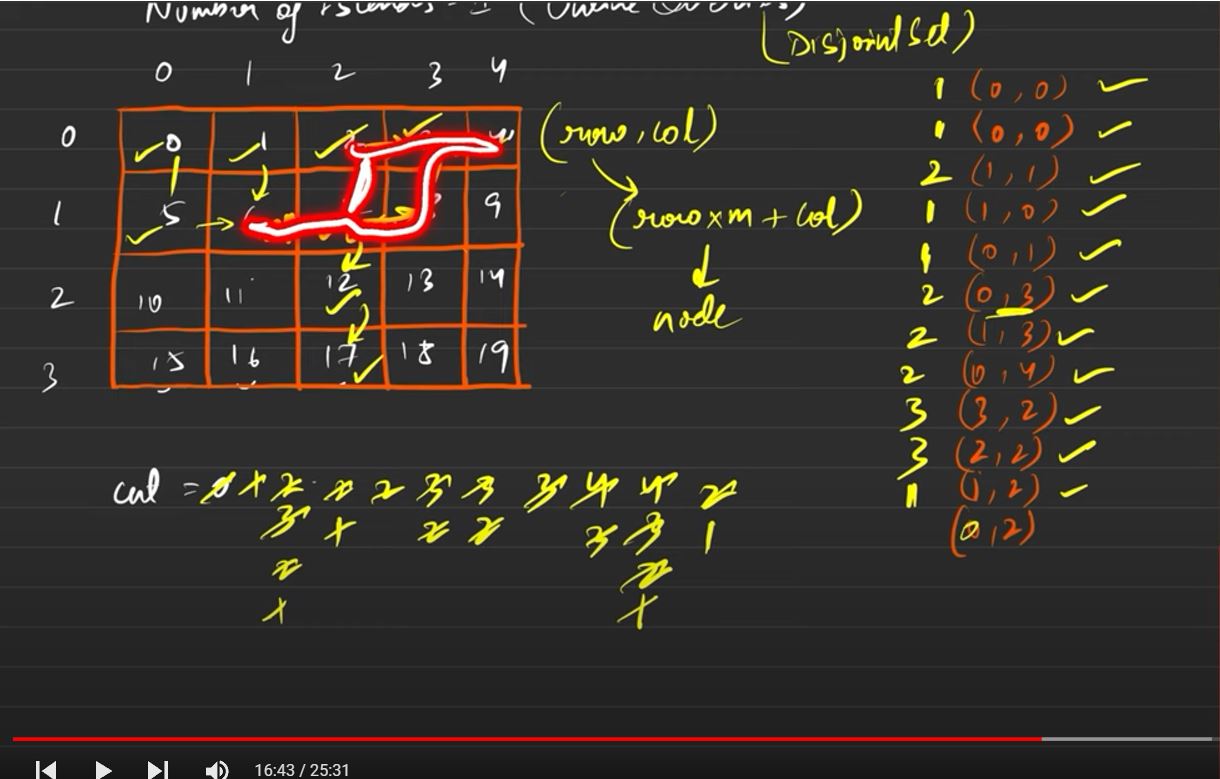 Number of Islands - II (Online Queries)
(Disjoint Set)
0 1 2 3 4
0 0 1
1 5 9
2 10 11 12 13 14
3 15 16 17 18 19
(row, col)
(row x m + col)
node
1 (0,0) ✓
1 (0,0) ✓
2 (1,1) ✓
1 (1,0) ✓
1 (0,1) ✓
2 (0,3) ✓
2 (1,3) ✓
2 (0,4) ✓
3 (3,2) ✓
3 (2,2) ✓
1 (1,2) ✓
(0,2)
cnt = 0 1 2 2 3 3 3 4 4 2
3 1 2 2 3 3 1
2 2
1 1
16:43 / 25:31